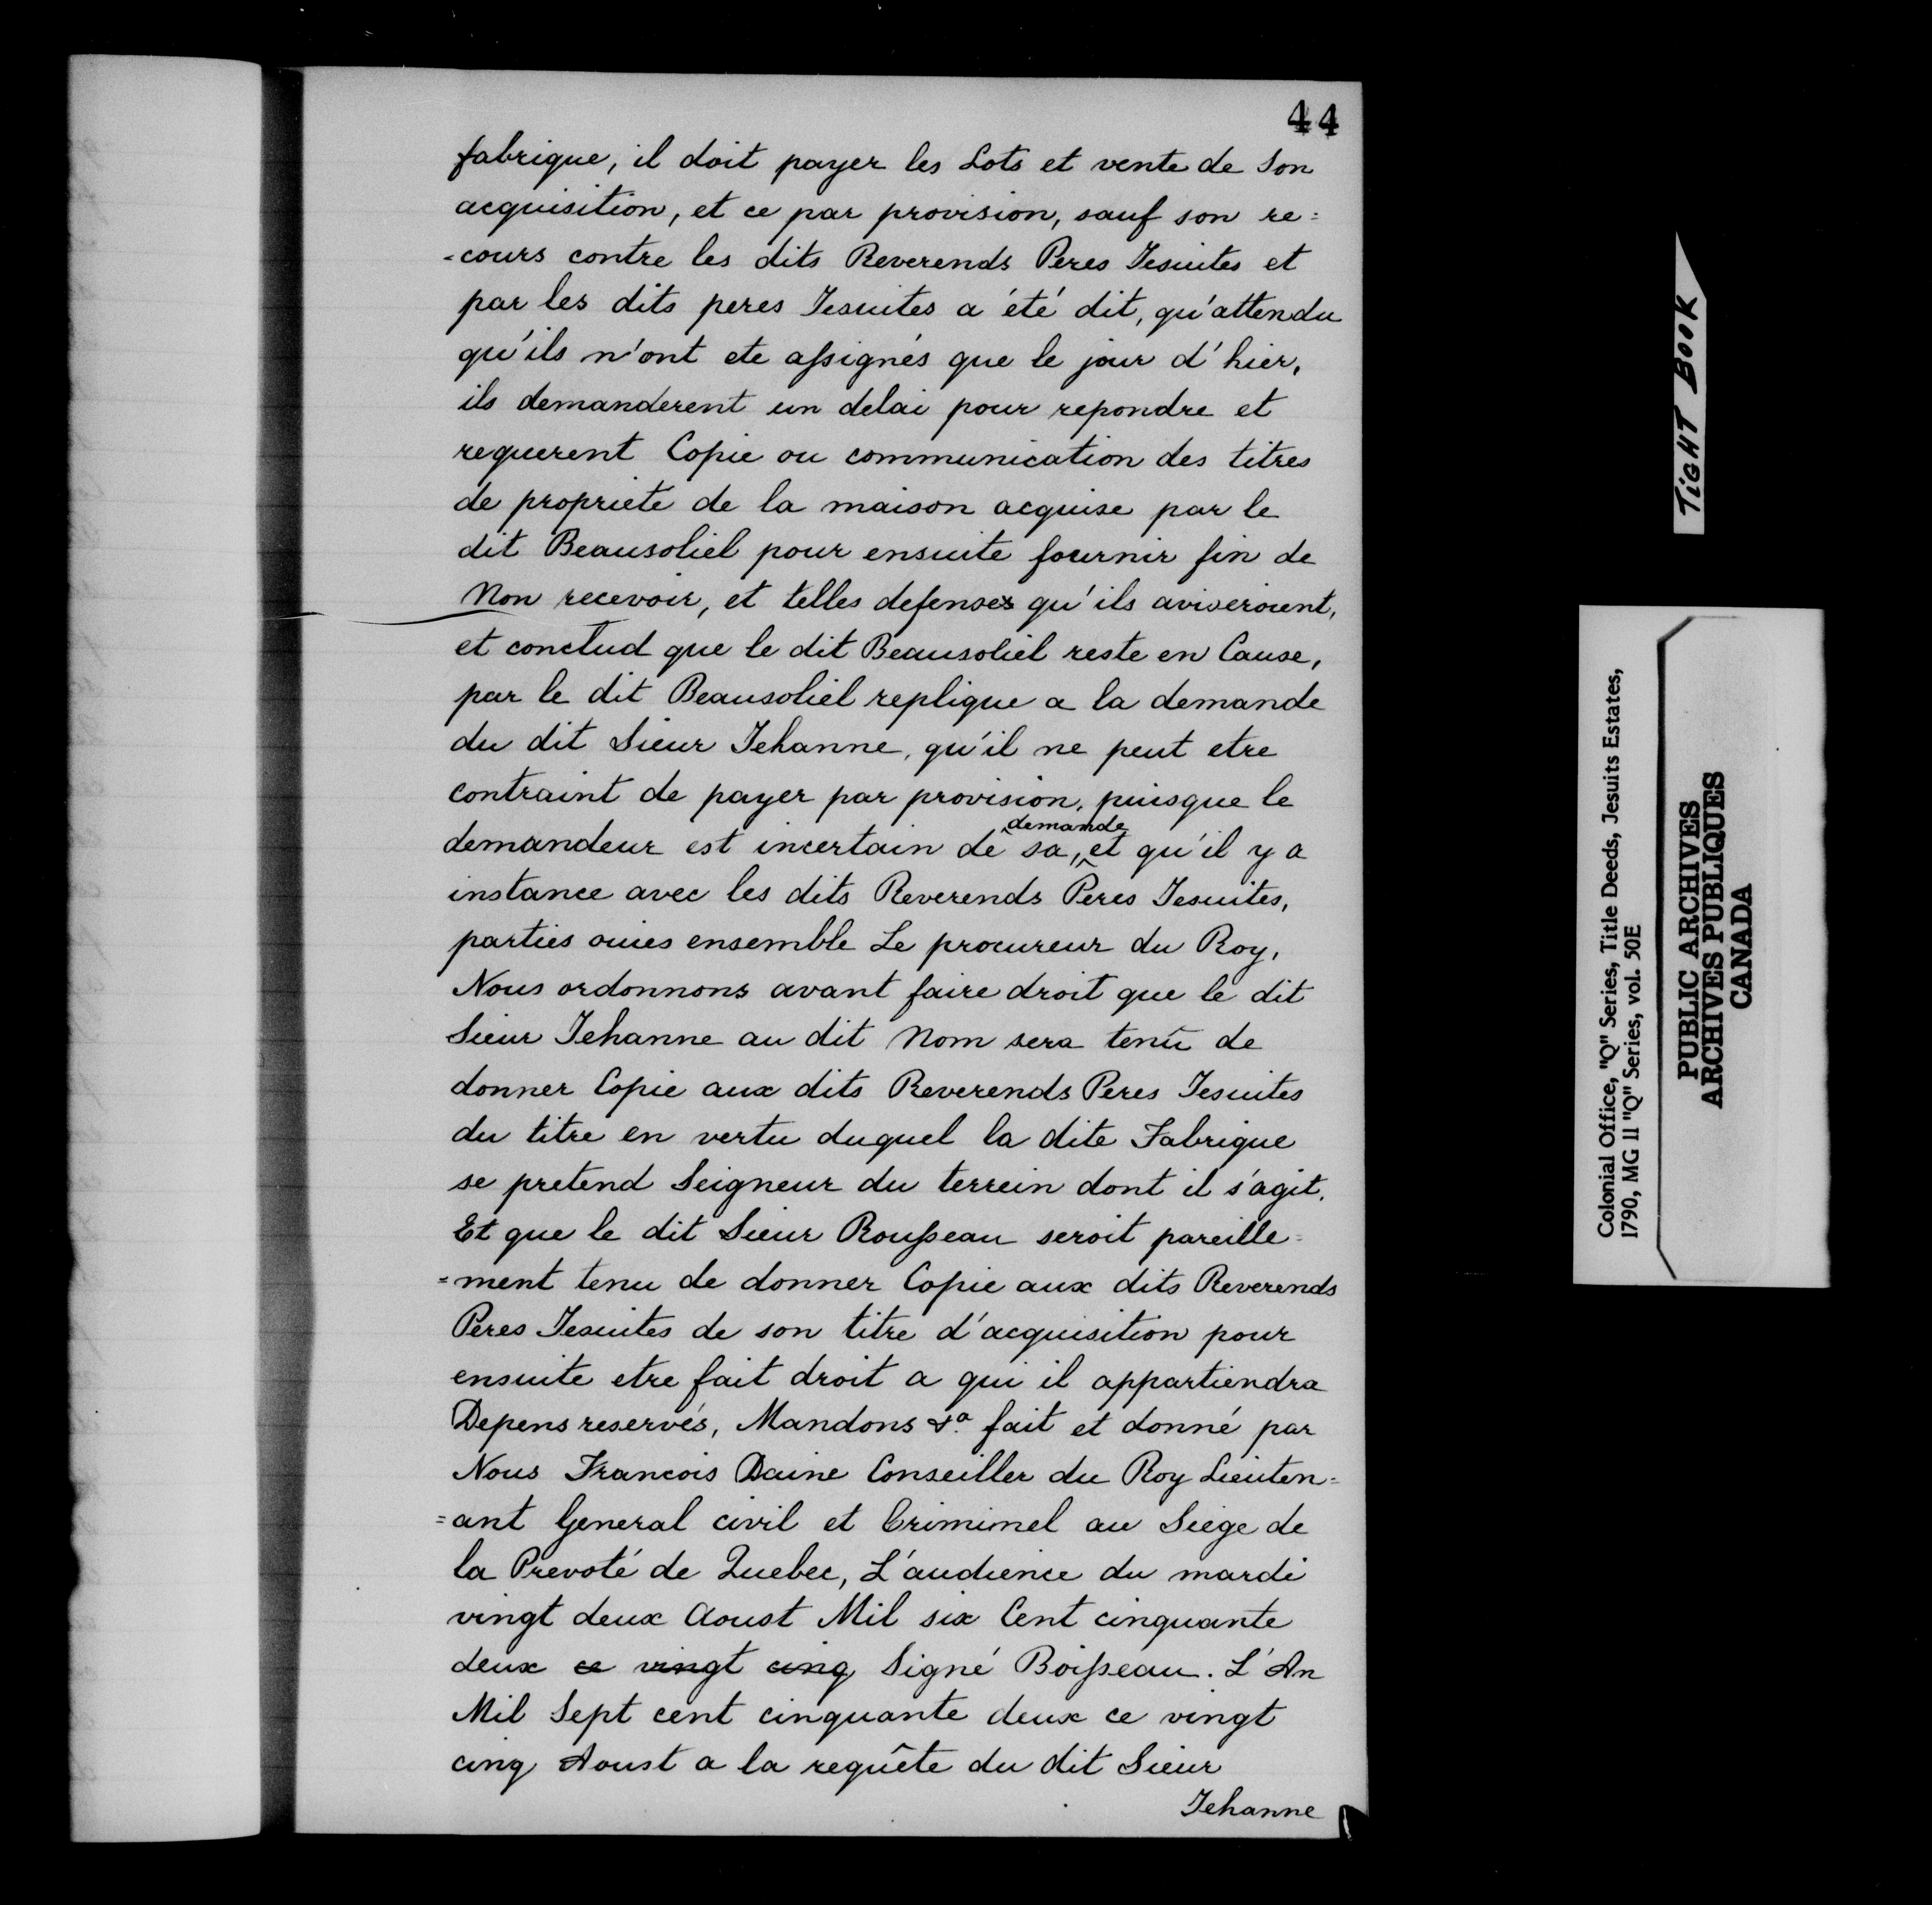 44
fabrique, il doit payer les Lots et vente de Son
acquisition, et ce par provision, sauf son re=
=cours contre les dits Reverends Peres Jesuites et
par les dits peres Jesuites a été dit, qu'attendu
qu'ils n'ont ete assignés que le jour d'hier,
ils demanderent un delai pour repondre et
requerent Copie ou communication des titres
de proprieté de la maison acquise par le
dit Beausoliel pour ensuite fournir fin de
Non recevoir, et telles defenses qu'ils aviseroient,
et conclud que le dit Beausoliel reste en Cause,
par le dit Beausoliel replique a la demande
du dit Sieur Jehanne, qu'il ne peut etre
contraint de payer par provision, puisque le
demandeur est incertain de sa demande, et qu'il y a
instance avec les dits Reverends Peres Jesuites,
parties ouies ensemble Le procureur du Roy,
Nous ordonnons avant faire droit que le dit
Sieur Jehanne au dit Nom sera tenû de
donner Copie aux dits Reverends Peres Jesuites
du titre en vertu duquel la dite Fabrique
se pretend Seigneur du terrein dont il s'agit.
Et que le dit Sieur Rousseau seroit pareille=
=ment tenu de donner Copie aux dits Reverends
Peres Jesuites de son titre d'acquisition pour
ensuite etre fait droit a qui il appartiendra
Depens reservés, Mandons &a. fait et donné par
Nous Francois Daine Conseiller du Roy Lieuten=
=ant General civil et Criminel au Siege de
la Prevoté de Quebec, L'audience du mardi
vingt deux Aoust Mil six Cent cinquante
deux ce vingt cinq Signé Boisseau. L'An
Mil Sept cent cinquante deux ce vingt
cinq Aoust a la requête du dit Sieur
Jehanne
TIGHT BOOK
Colonial Office, "Q" Series, Title Deeds, Jesuits Estates,
1790, MG 11 "Q" Series, vol. 50E
PUBLIC ARCHIVES
ARCHIVES PUBLIQUES
CANADA